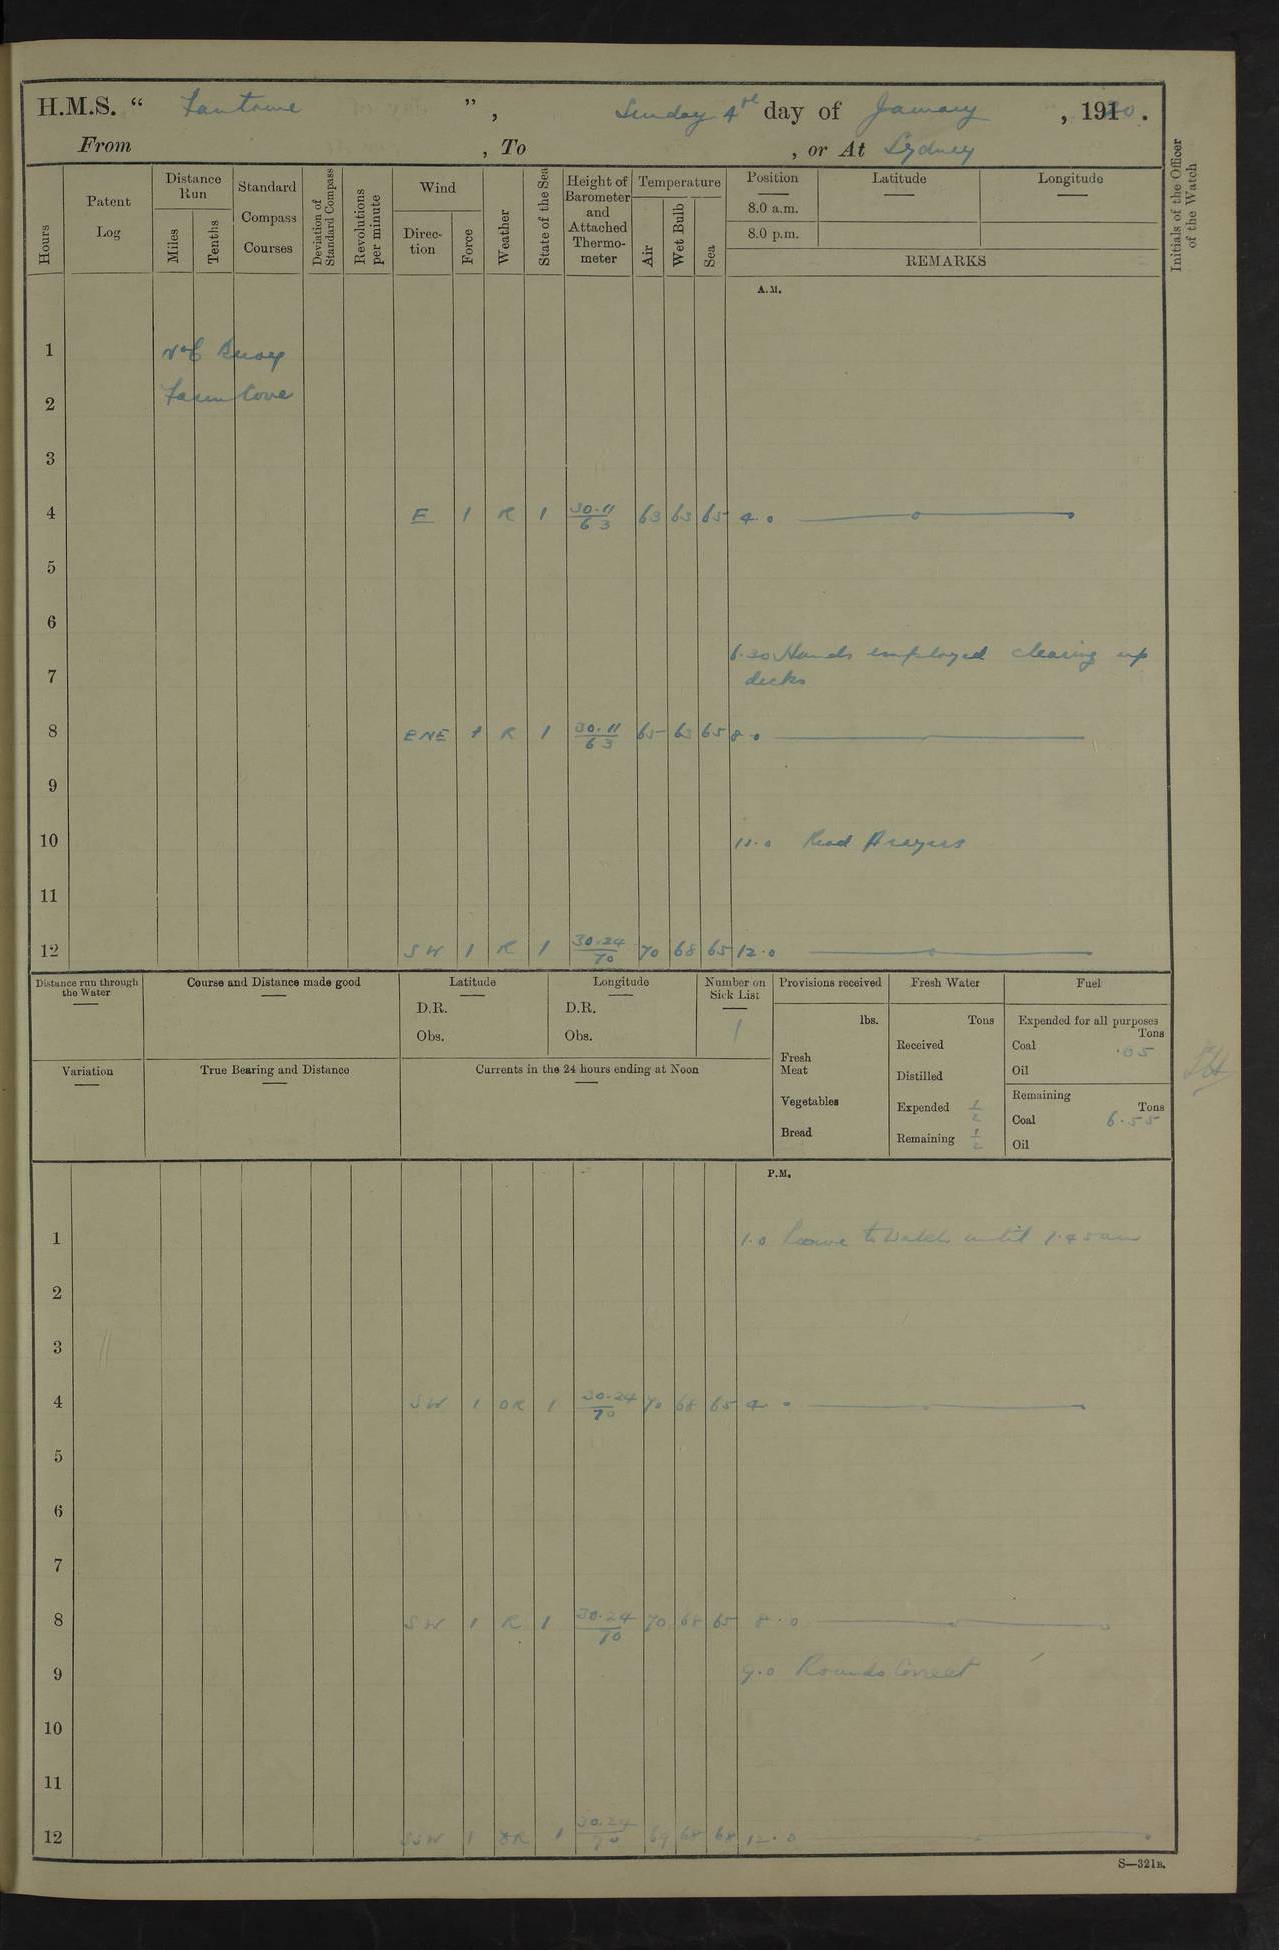 H.M.S. “ Fantome ”, Sunday 4th day of January, 1920.
From , To , or At Sydney
Hours
Patent Log
Distance Run
Miles
Tenths
Standard Compass Courses
Deviation of Standard Compass
Revolutions per minute
Wind
Direction
Force
Weather
State of the Sea
Height of Barometer and Attached Thermometer
Temperature
Air
Wet Bulb
Sea
Position
8.0 a.m.
8.0 p.m.
Latitude
Longitude
REMARKS
Initials of the Officer of the Watch
A.M.
1 Buoy
2 Farm Cove
3
4 E 1 R 1 30.11/63 63 63 65 4.0
5
6
6.30 Hands employed clearing up
7 decks
8 ENE 1 R 1 30.11/63 65 63 65 8.0
9
10 Read Prayers
11
12 SW 1 R 1 30.24/70 70 68 65 12.0
Distance run through the Water
Course and Distance made good
Latitude
D.R.
Obs.
Longitude
D.R.
Obs.
Number on Sick List
1
Provisions received
lbs.
Fresh Meat
Vegetables
Bread
Fresh Water
Tons
Received
Distilled
Expended 1/2
Remaining 1/2
Fuel
Expended for all purposes
Tons
Coal .05
Oil
Remaining
Tons
Coal 6.55
Oil
Variation
True Bearing and Distance
Currents in the 24 hours ending at Noon
P.M.
1 1.0 Leave to Watch until 7.45am
2
3
4 SW 1 OR 1 30.24/70 70 68 65 4.0
5
6
7
8 SW 1 R 1 30.24/70 70 68 65 8.0
9 9.0 Rounds Correct
10
11
12 SSW 1 OR 1 30.24/70 69 68 68 12.0
S—321B.